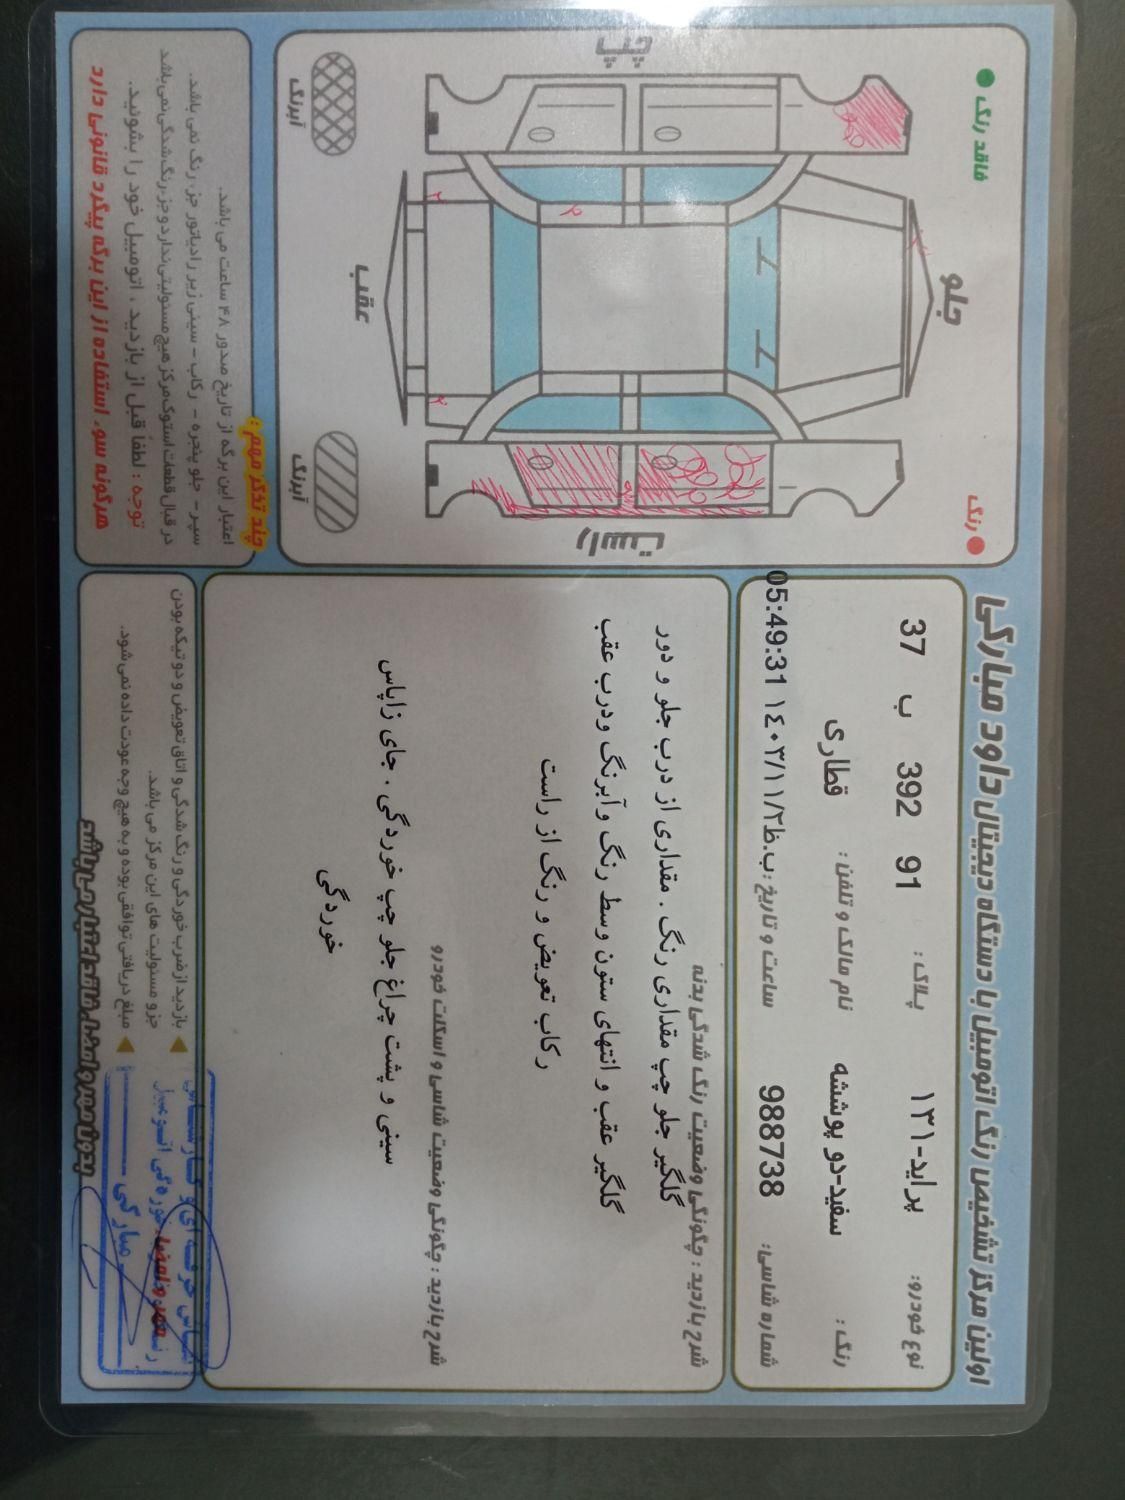 اولین مرکز تشخیص رنگ اتومبیل با دستگاه دیجیتال داود مبارکی
نوع خودرو: پراید-۱۳۱
پلاک: 37 ب 392 91
رنگ: سفید-دو پوششه
نام مالک و تلفن: قطاری
شماره شاسی: 988738
ساعت و تاریخ: ۱۴۰۳/۱۱/۲ ب.ظ 05:49:31
شرح بازدید: چگونگی وضعیت رنگ شدگی بدنه
گلگیر جلو چپ مقداری رنگ. مقداری از درب جلو و دور
گلگیر عقب و انتهای ستون وسط رنگ و آبرنگ و درب عقب
رکاب تعویض و رنگ از راست
شرح بازدید: چگونگی وضعیت شاسی و اسکلت خودرو
سینی و پشت چراغ جلو چپ خوردگی. جای زاپاس
خوردگی
بازدید از ضرب خوردگی و رنگ شدگی و اتاق تعویض و دو تیکه بودن
جزو مسئولیت های این مرکز می باشد.
مبلغ دریافتی توافقی بوده و به هیچ وجه عودت داده نمی شود.
بدون مهر و امضا فاقد اعتبار می باشد
مهر و امضا:
مبارکی
فاقد رنگ
رنگ
چپ
جلو
عقب
راست
آبرنگ
آبرنگ
چند تذکر مهم:
اعتبار این برگه از تاریخ صدور ۴۸ ساعت می باشد.
سپر - جلو پنجره - رکاب - سینی زیر رادیاتور جزء رنگ نمی باشد.
در قبال قطعات استوک مرکز هیچ مسئولیتی ندارد و جزء رنگ شدگی نمی باشد
توجه: لطفا قبل از بازدید، اتومبیل خود را بشوئید..
هرگونه سوء استفاده از این برگه پیگرد قانونی دارد